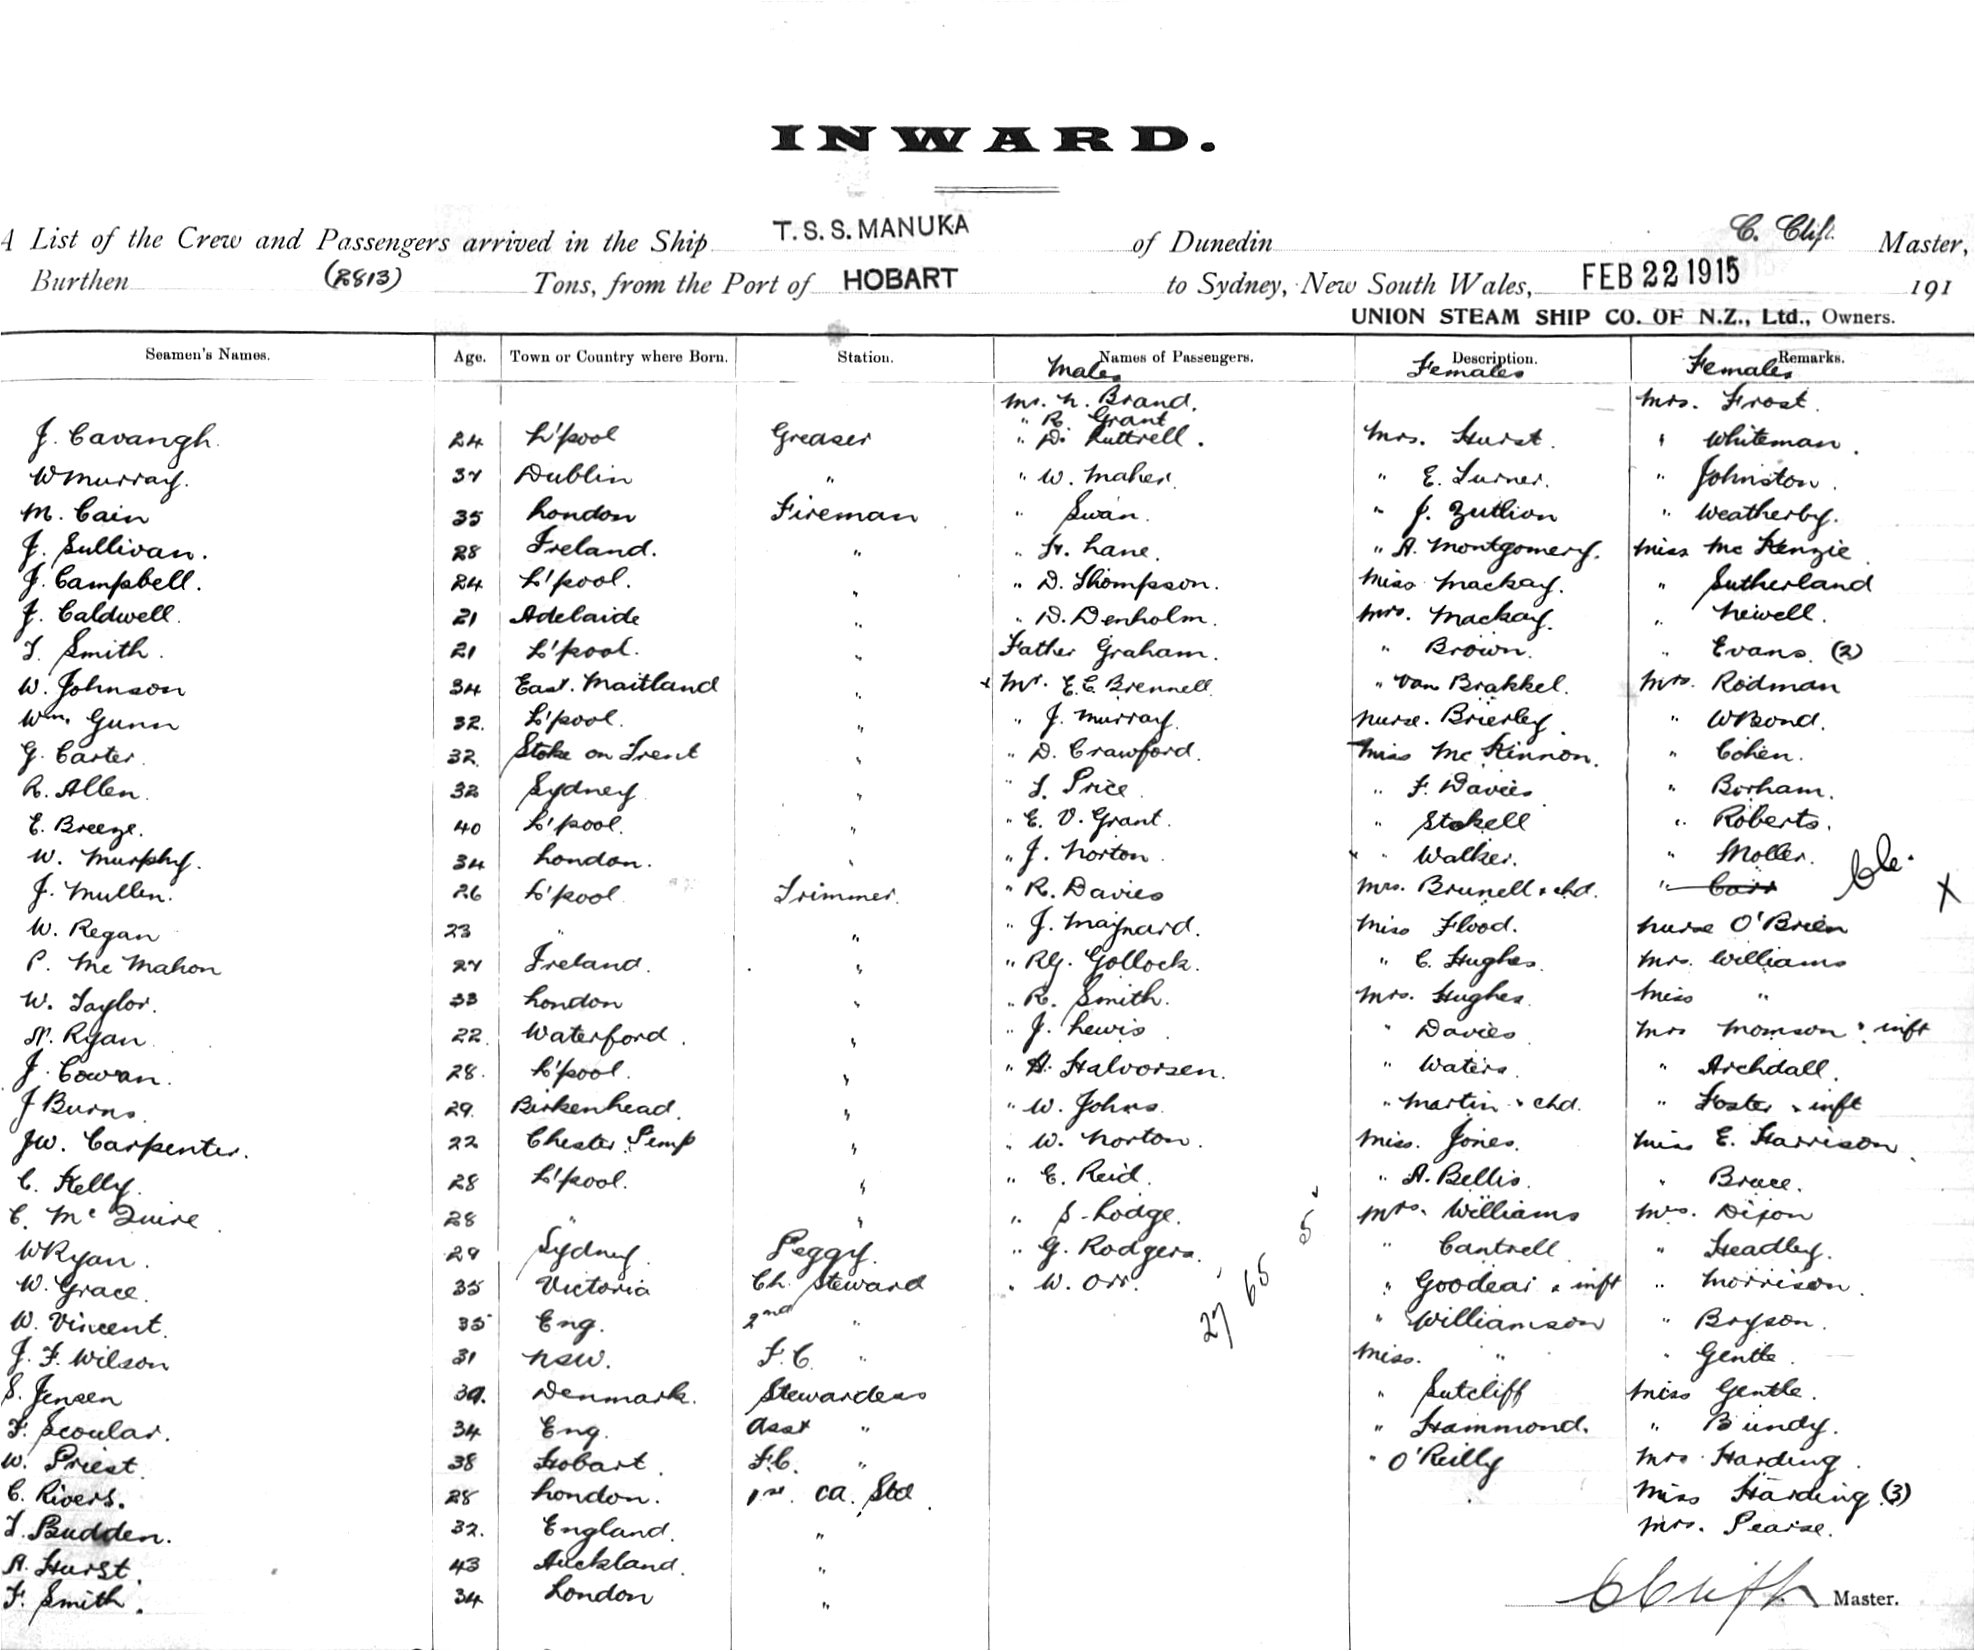 INWARD.
A List of the Crew and Passengers arrived in the Ship T.S.S. MANUKA of Dunedin C. Clif. Master,
Burthen (2813) Tons, from the Port of HOBART to Sydney, New South Wales, FEB 22 1915 191
UNION STEAM SHIP CO. OF N.Z., Ltd., Owners.
Seamen's Names. Age. Town or Country where Born. Station. Names of Passengers. Description. Remarks.
Males Females Females
Mr. N. Brand. Mrs. Frost.
" R. Grant
J. Cavangh. 24 L'pool Greaser " D. Luttrell. Mrs. Hurst. " Whiteman.
W Murray. 37 Dublin " " W. Maher. " E. Turner. " Johnston.
M. Cain 35 London Fireman " Swan. " J. Zutlion " Weatherby.
J. Sullivan. 28 Ireland. " " H. Lane. " A. Montgomery. Miss Mc Kenzie
J. Campbell. 24 L'pool. " " D. Thompson. Miss Mackay. " Sutherland
J. Caldwell. 21 Adelaide " " D. Denholm. Mrs. Mackay. " Newell.
T. Smith. 21 L'pool. " Father Graham. " Brown. " Evans. (2)
W. Johnson 34 East. Maitland " x Mr. E.C. Brennell. " Van Brakkel. Mrs. Rodman
Wm. Gunn 32. L'pool. " " J. Murray. Nurse. Brierley. " W Bond.
G. Carter. 32. Stoke on Trent " " D. Crawford. Miss Mc Kinnon. " Cohen.
R. Allen. 32 Sydney " " T. Price. " F. Davies. " Borham.
E. Breeze. 40 L'pool. " " E. V. Grant. " Stokell " Roberts.
W. Murphy. 34 London. " " J. Norton. x " Walker. " Moller.
J. Mullen. 26 L'pool Trimmer. " R. Davies Mrs. Brunell & chd. " Carr X
W. Regan 23 " " " J. Maynard. Miss Flood. Nurse O'Brien
P. Mc Mahon 27 Ireland. " " R.G. Gollock. " C. Hughes. Mrs. Williams
W. Taylor. 33 London " " R. Smith. Mrs. Hughes. Miss "
N. Ryan 22. Waterford. " " J. Lewis. " Davies. Mrs Momson & inft
J. Cowan. 28. L'pool. " " H. Halvorsen. " Waters. " Archdall.
J Burns. 29. Birkenhead. " " W. Johns. " Martin & chd. " Foster & inft
JW. Carpenter. 22 Chester. " " W. Norton. Miss. Jones. Miss E. Harrison.
C. Kelly. 28 L'pool. " " E. Reid. " A. Bellis. " Brace.
C. Mc Guire. 28 " " " S. Lodge. Mrs. Williams Mrs. Dixon
W Ryan. 29 Sydney. Peggy. " G. Rodgers. " Cantrell " Headley.
W. Grace. 35 Victoria Ch. Steward " W. Orr. " Goodear & inft " Morrison.
27 65 5
W. Vincent. 35 Eng. 2nd " " Williamson " Bryson.
J. F. Wilson 31 NSW. F.C. " Miss. " " Gentle.
S. Jensen 39. Denmark. Stewardess " Sutcliff Miss Gentle.
F. Scoular. 34 Eng. Asst " " Hammond. " Bundy.
W. Priest. 38 Hobart. F.C. " " O'Reilly Mrs. Harding.
C. Rivers. 28 London. 1st. ca. Std. Miss Harding. (3)
T. Budden. 32. England. " Mrs. Pearse.
A. Hurst. 43 Auckland. "
F. Smith. 34 London " C Cliff Master.